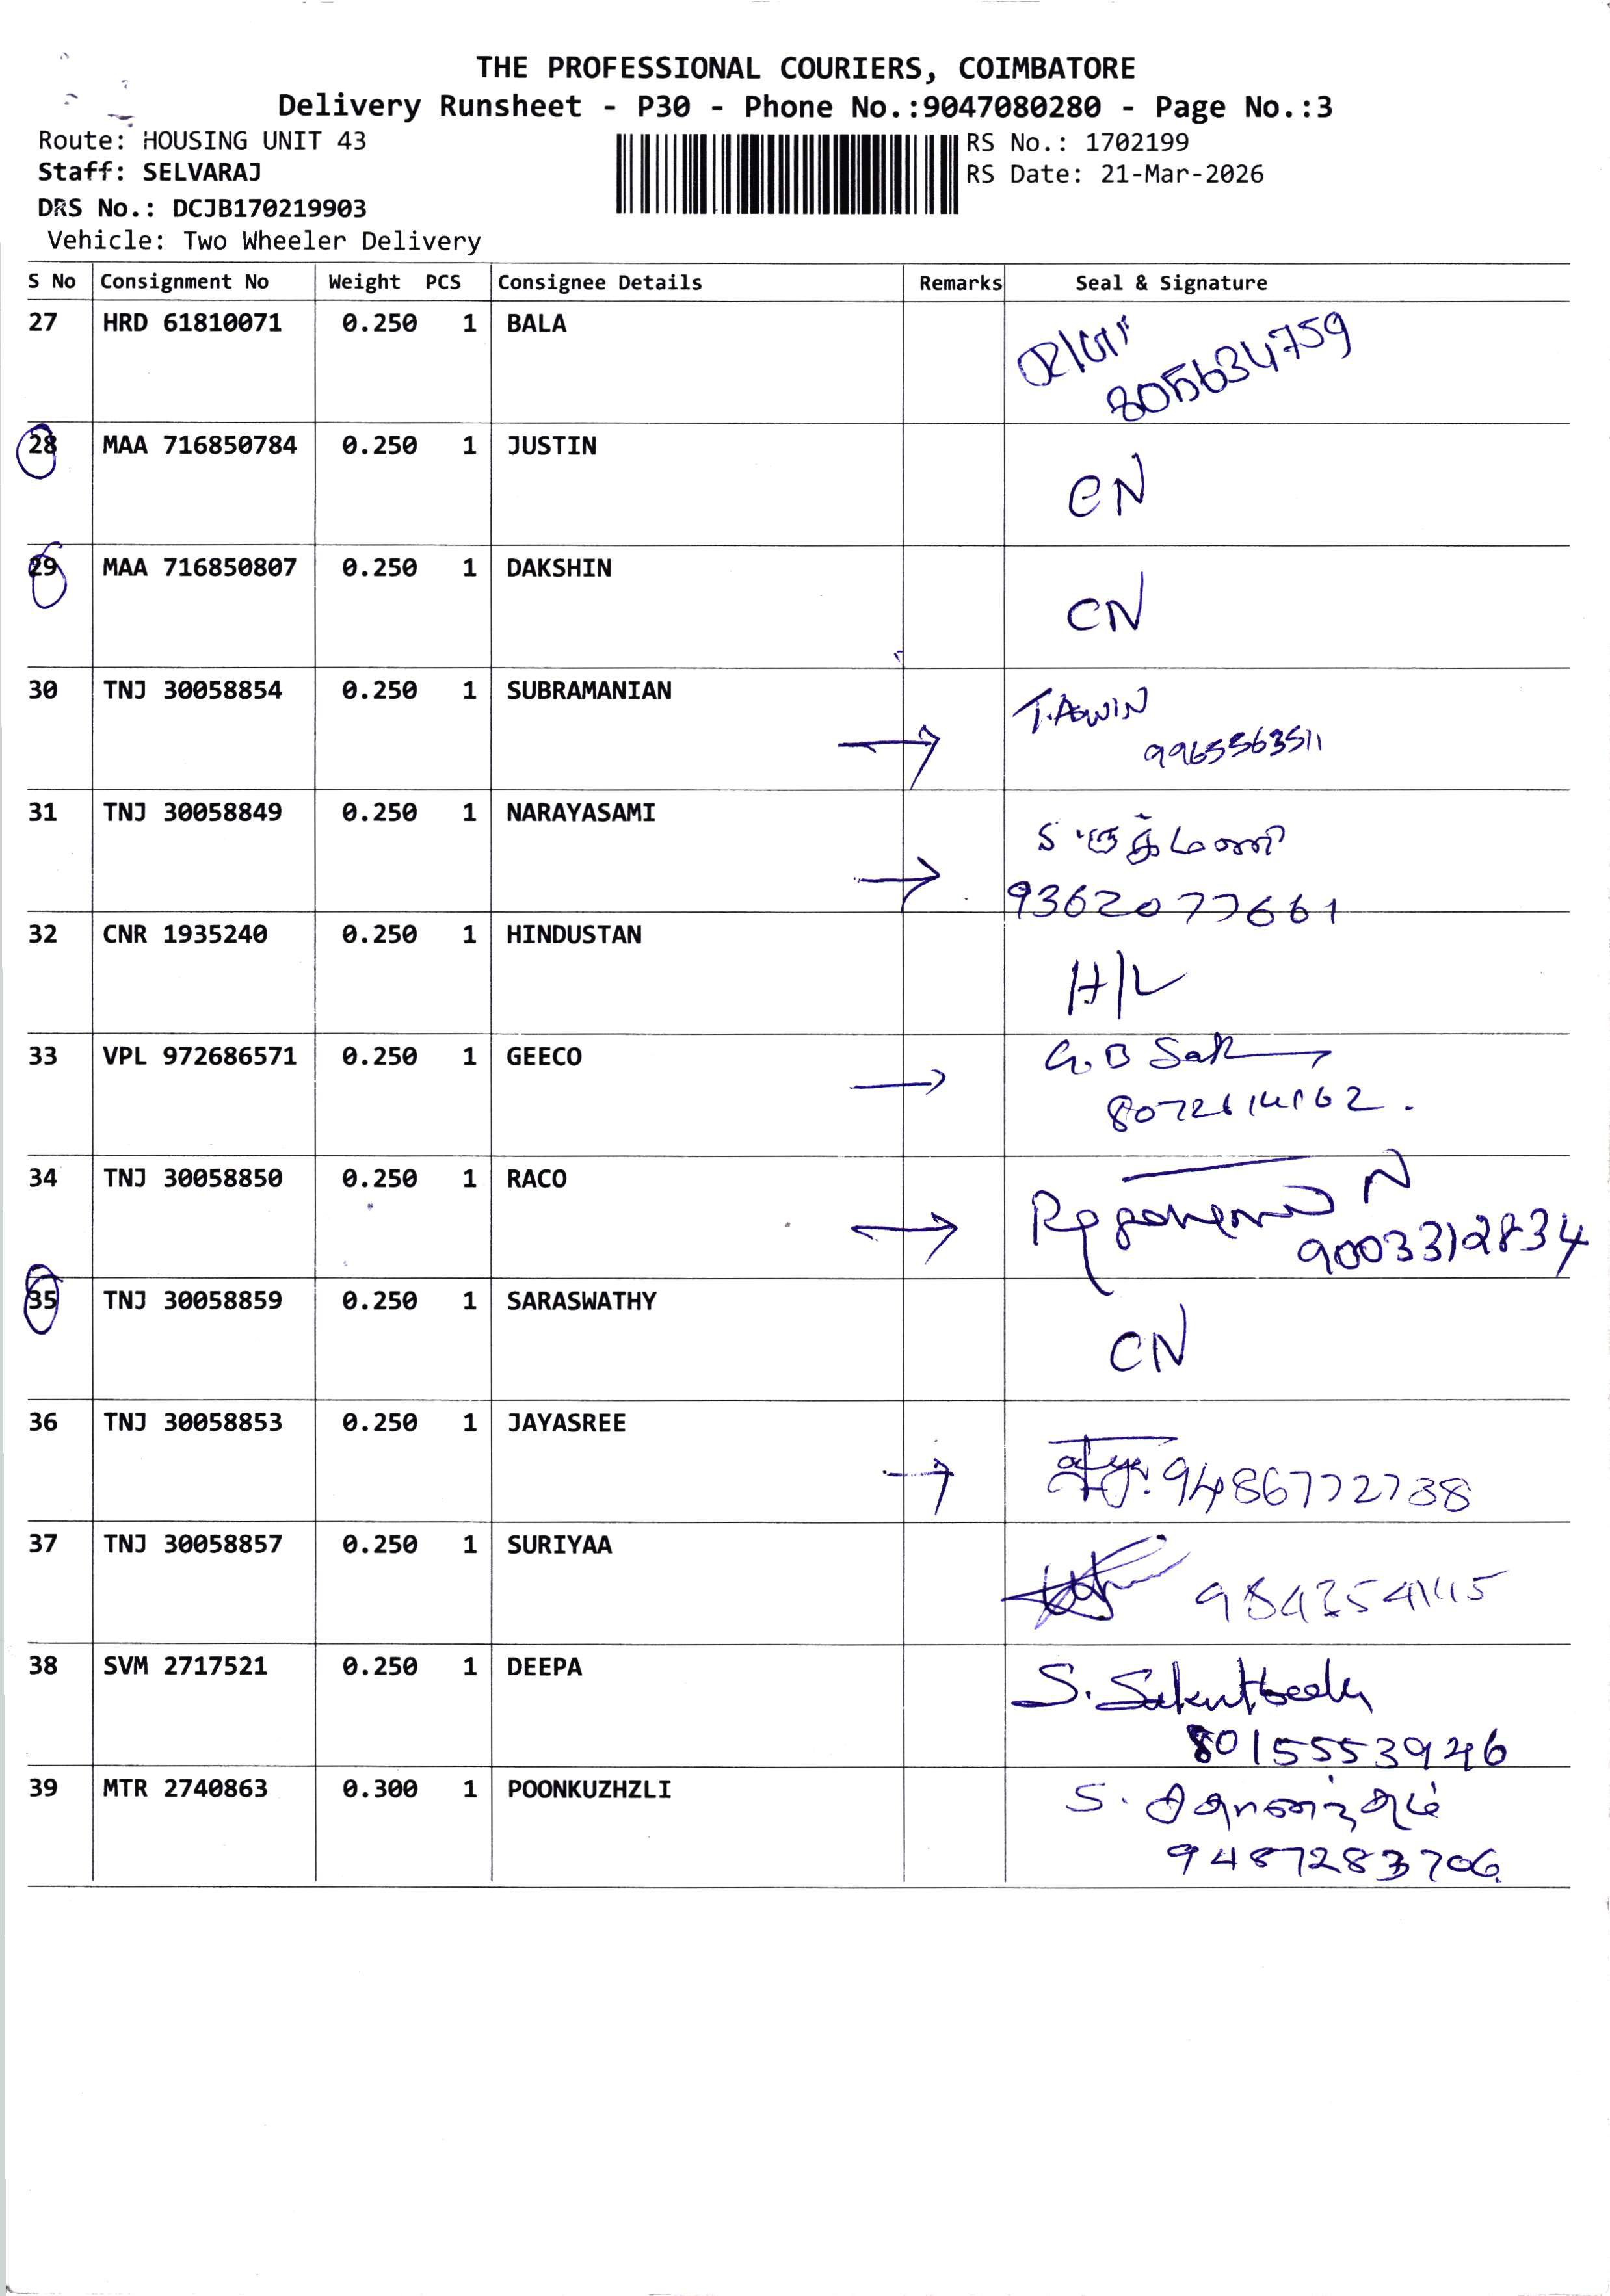 THE PROFESSIONAL COURIERS, COIMBATORE
Delivery Runsheet - P30 - Phone No.:9047080280 - Page No.:3
Route: HOUSING UNIT 43
RS No.: 1702199
Staff: SELVARAJ
RS Date: 21-Mar-2026
DRS No.: DCJB170219903
Vehicle: Two Wheeler Delivery
S No Consignment No Weight PCS Consignee Details Remarks Seal & Signature
27 HRD 61810071 0.250 1 BALA
805634759
28 MAA 716850784 0.250 1 JUSTIN
CN
29 MAA 716850807 0.250 1 DAKSHIN
CN
30 TNJ 30058854 0.250 1 SUBRAMANIAN
T.ASWIN
9965563511
31 TNJ 30058849 0.250 1 NARAYASAMI
9362077661
32 CNR 1935240 0.250 1 HINDUSTAN
H/L
33 VPL 972686571 0.250 1 GEECO
34 TNJ 30058850 0.250 1 RACO
9003312834
35 TNJ 30058859 0.250 1 SARASWATHY
CN
36 TNJ 30058853 0.250 1 JAYASREE
9486772738
37 TNJ 30058857 0.250 1 SURIYAA
38 SVM 2717521 0.250 1 DEEPA
S.
8015553946
39 MTR 2740863 0.300 1 POONKUZHZLI
S.
9487283706